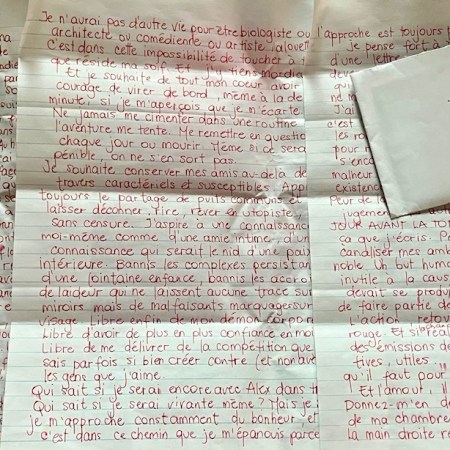 Je n'aurai pas d'autre vie pour être biologiste ou
architecte ou comédienne ou artiste
C'est dans cette impossibilité de toucher à
que réside ma soif. Et
Et je souhaite de tout mon coeur avoir
courage de virer de bord, même à la de
minute, si je m'aperçois que je m'écarte
Ne jamais me cimenter dans une routine
l'aventure me tente. Me remettre en questio
chaque jour ou mourir. Même si ce sera
pénible, on ne s'en sort pas.
Je souhaite conserver mes amis au-delà de
travers caractériels et susceptibles. App
toujours le partage de puits communs et
laisser déconner, rire, rêver en utopiste,
sans censure. J'aspire à une connaissanc
moi-même comme d'une amie intime, d'un
connaissance qui serait le nid d'une paix
intérieure. Bannis les complexes persistan
d'une lointaine enfance, bannis les accro
de laideur qui ne laissent aucune trace sur
miroirs mais de malfaisants maquillages sur
visage. Libre enfin de mon démon corpore
Libre d'avoir de plus en plus confiance en moi
Libre de me délivrer de la compétition que
sais parfois si bien créer contre (et non ave
les gens que j'aime.
Qui sait si je serai encore avec Alex dans
Qui sait si je serai vivante même? Mais je
je m'approche constamment du bonheur, et
c'est dans ce chemin que je m'épanouis parce
l'approche est toujours
Je pense fort à
d'une lettre
dev
qui
ne
J'ai
c'est
les
pour
s'enco
malheur
existenc
Peur de
jugement
JOUR AVANT LA
ça que j'écris. P
canaliser mes am
noble. Un but huma
inutile à la caus
devait se produ
de faire partie de
l'action, retou
rouge. Et si
des émissions de
tives, utiles
qu'il faut pour
Et l'amour,
Donnez-m'en d
de ma chambre
la main droite re